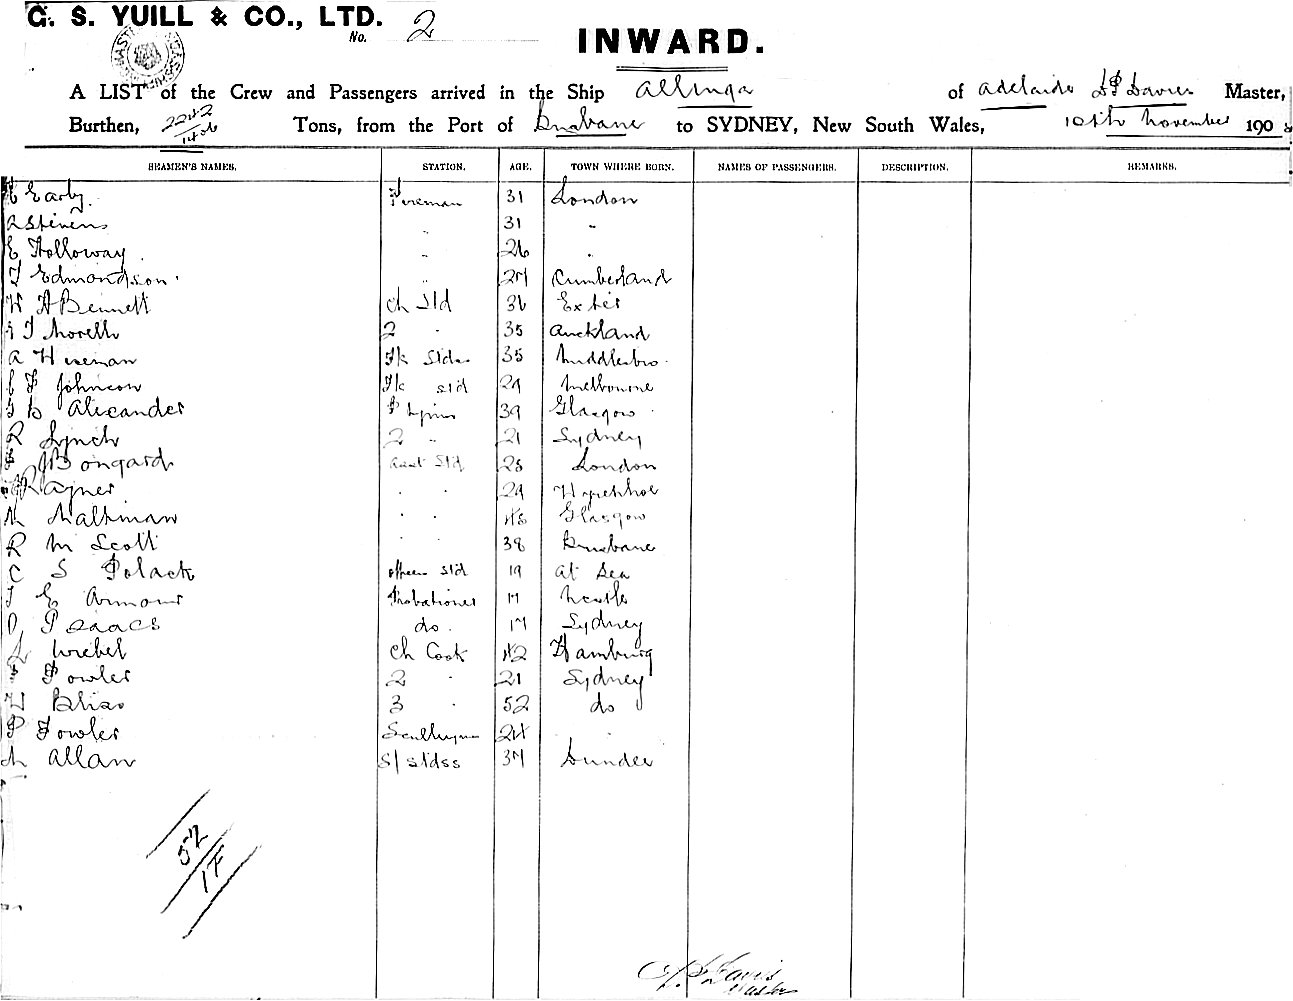 G. S. YUILL & CO., LTD.
No. 2
INWARD.
A LIST of the Crew and Passengers arrived in the Ship Allinga of Adelaide Davies Master,
Burthen, 2242 Tons, from the Port of Brisbane to SYDNEY, New South Wales, 10th November 190
SEAMEN'S NAMES. STATION. AGE. TOWN WHERE BORN. NAMES OF PASSENGERS. DESCRIPTION. REMARKS.
Early Fireman 31 London
A Stevens " 31 "
E Holloway " 26 "
T Edmondson " 27 Cumberland
W H Bennett Ch Std 36 Exeter
T Morell 2 " 35 Auckland
A Wiseman Stdss 35 Middlesbro
F Johnson Std 29 Melbourne
D Alexander 39 Glasgow
R Lynch 2 " 21 Sydney
J Bongard Asst Std 25 London
Rayner " " 29
M Maltman " " 43 Glasgow
R M Scott " " 38 Brisbane
C S Polack Officers Std 19 At Sea
T E Armour Probationer 17 Ncastle
D Isaacs do. 17 Sydney
L Wiebel Ch Cook 42 Hamburg
F Fowler 2 " 21 Sydney
W Bliss 3 " 52 do
P Fowler Scullryman 24 "
M Allan S/ Stdss 37 Dundee
52
17
Davies
Master